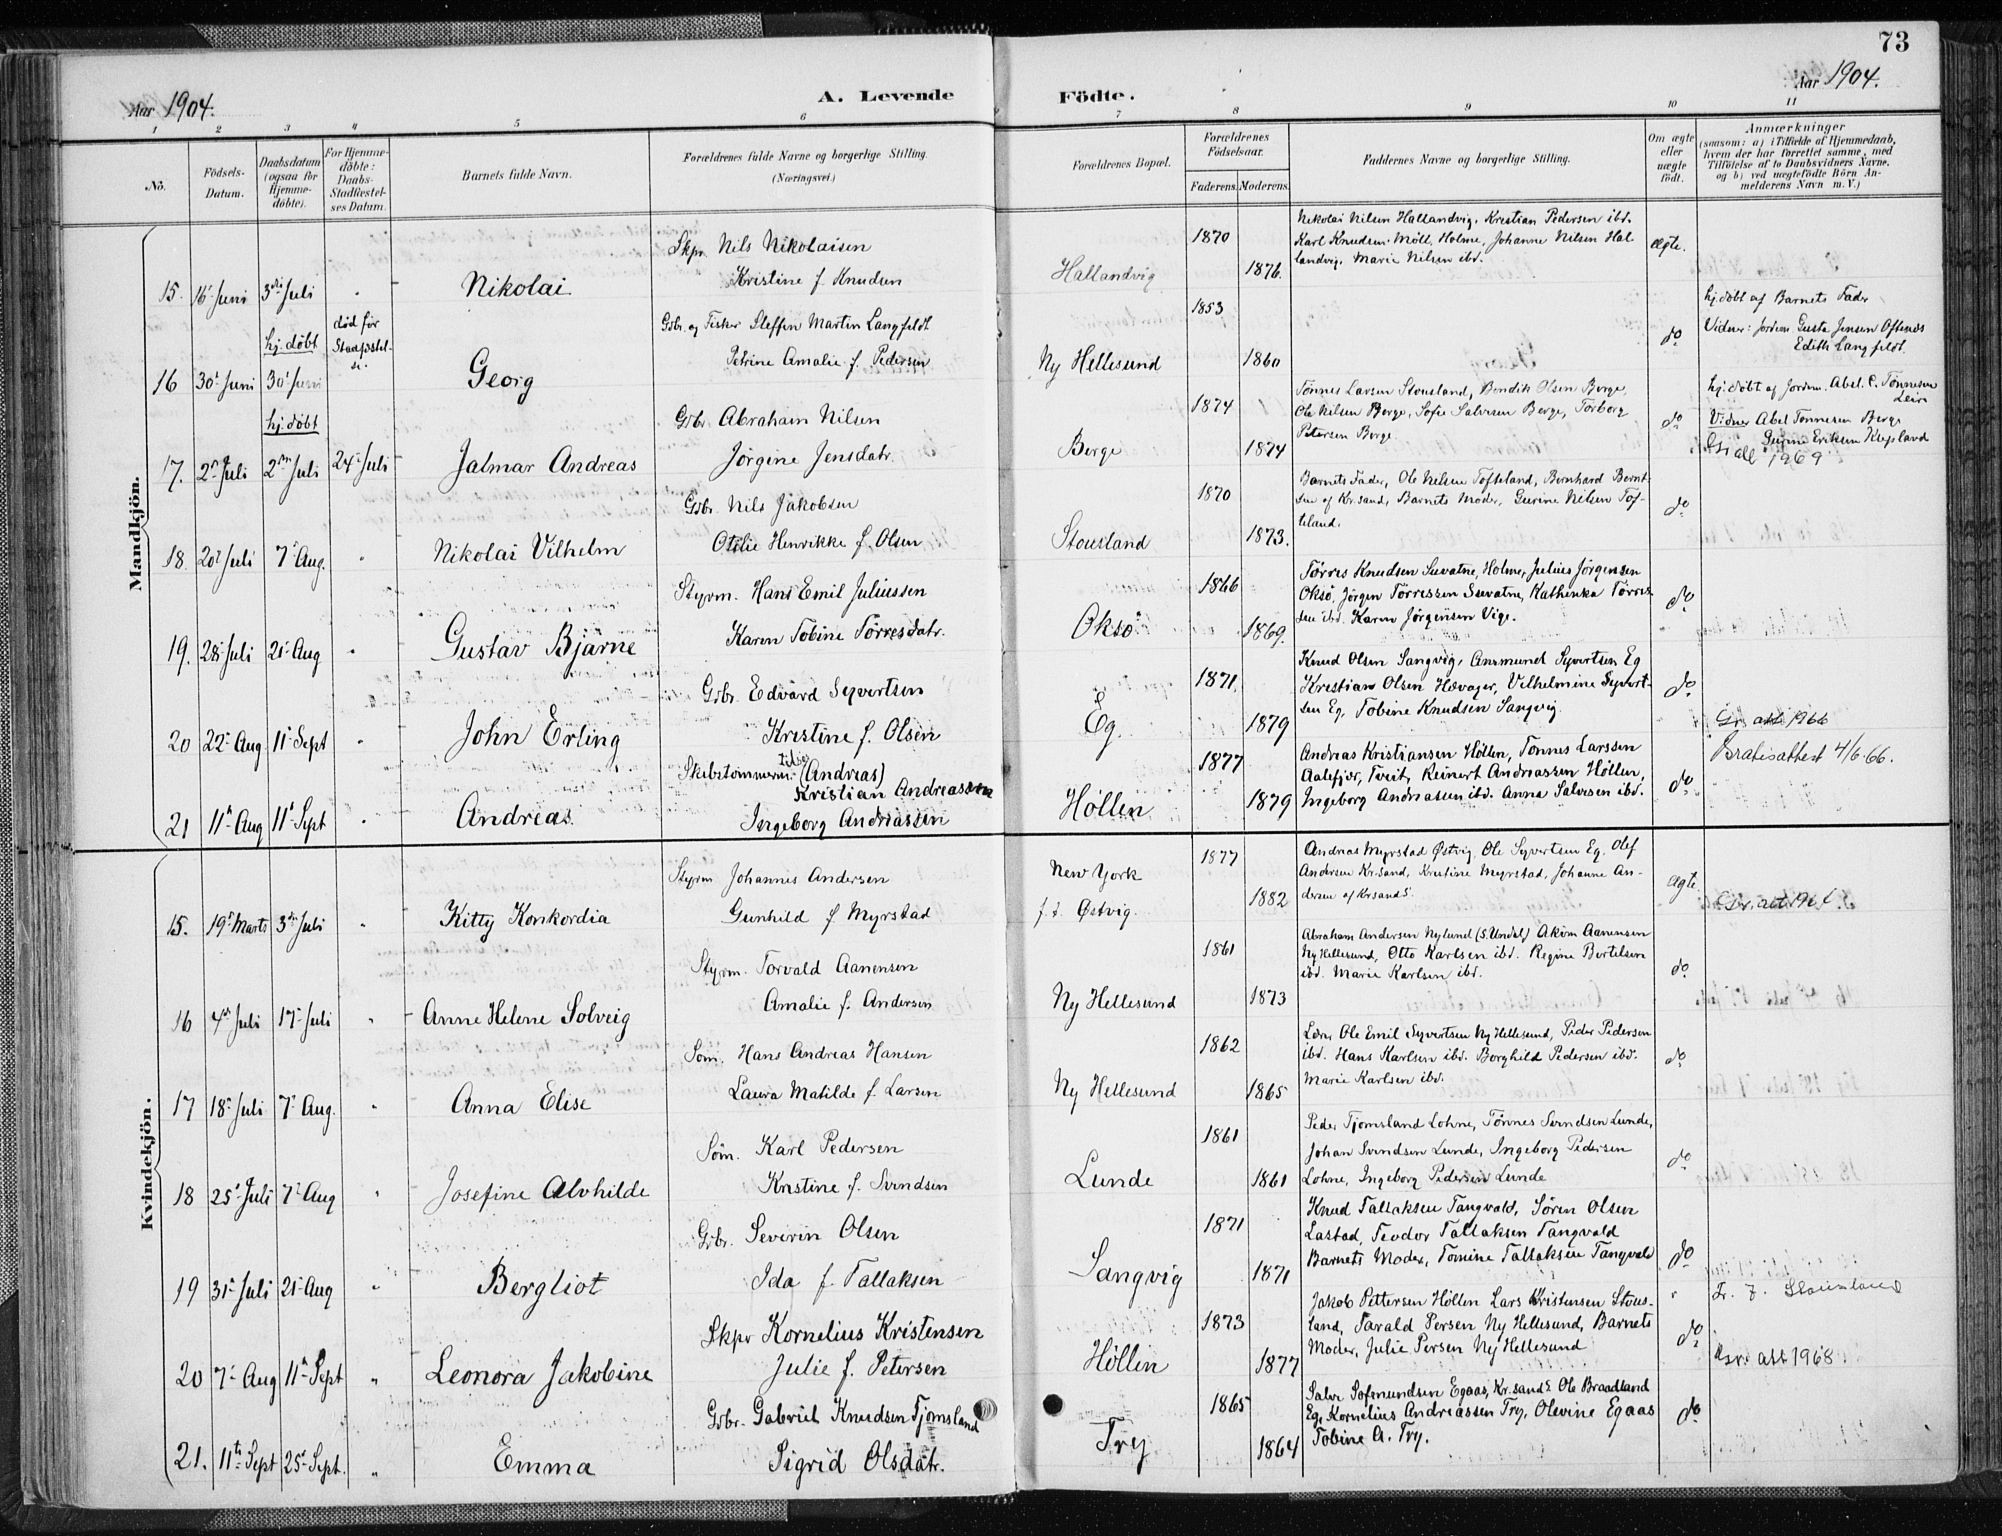 73
Aar 1904.
A. Levende Födte.
Aar 1904.
1 2 3 4 5 6 7 8 9 10 11
No.
Födsels-Datum.
Daabsdatum (ogsaa for Hjemme-döbte).
For Hjemme-döbte: Daabs-Stadfæstel-ses Datum.
Barnets fulde Navn.
Forældrenes fulde Navne og borgerlige Stilling.
(Næringsvei.)
Forældrenes Bopæl.
Forældrenes Födselsaar.
Faderens. Moderens.
Faddernes Navne og borgerlige Stilling.
Om ægte eller uægte födt.
Anmærkninger
(saasom: a) i Tilfælde af Hjemmedaab,
hvem der har forrettet samme, med
Tilföielse af to Daabsvidners Navne.
og b) ved uægtefödte Börn An-
melderens Navn m. V.)
Mandkjön.
Skpr. Nils Nikolaisen 1870 Nikolai Nilsen Hallandvig, Kristian Pedersen ibd.
Karl Knudsen Möll, Holme, Johanne Nilsen Hal
landvig, Marie Nilsen ibd. Ægte.
15. 16 Juni 3die Juli " Nikolai Kristine f. Knudsen Hallandvig 1876.
hj. döbt død før Stadfæstel-se. Gbr. og Fisker Steffen Martin Langfeldt 1853 do hj. döbt af Barnets Fader
Vidner: Jordm. Gusta Jensen Oftenes
Edith Langfeldt.
16 30t Juni 30t Juni Georg Petrine Amalie f. Pedersen Ny Hellesund 1860
hj. döbt Gbr. Abraham Nilsen 1874 Tönnes Larsen Stousland, Bendik Olsen Berge,
Ole Nilsen Berge, Sofie Salvesen Berge, Torborg
Petersen Berge do hj. döbt af Jordm. Abel C. Tönnesen
Leire
Vidner Abel Tonnesen Berge
Gurine Eriksen Kupland
1969
17. 2n Juli 2n Juli 24 Juli Jalmar Andreas Jörgine Jensdatr. Berge 1874
Gbr. Nils Jakobsen 1870 Barnets Fader, Ole Nilsen Tofteland, Bernhard Bernt-
sen af Kr.sand, Barnets Moder, Gurine Nilsen Tof-
teland. do
18. 20t Juli 7 Aug. " Nikolai Vilhelm Otilie Henrikke f. Olsen Stousland 1873.
Styrm. Hans Emil Juliussen 1866 Törres Knudsen Suvatne, Holme, Julius Jörgensen
Oksö, Jörgen Törressen Suvatne, Kathinka Törres-
sen ibd. Karen Jörgensen Vige. do
19. 28 Juli 21 Aug " Gustav Bjarne Karen Tobine Törresdatr. Oksö 1869.
Gbr. Edvard Syvertsen 1871. Knud Olsen Sangvig, Aasmund Syvertsen Eg
Kristian Olsen Hævager, Vilhelmine Syvert-
sen Eg, Tobine Knudsen Sangvig do
20 22 Aug 11 Sept " John Erling Kristine f. Olsen Eg 1879 Gr. att 1966
Skibstömmerm. (Andreas)
Kristian Andreassen 1877 Andreas Kristiansen Höllen, Tönnes Larssen
Aalefjær, Tveit, Reinert Andreassen Höllen,
Ingeborg Andreasen ibd. Anna Salvesen ibd. do Gratisattest 4/6-66.
21 11t Aug 11t Sept " Andreas Ingeborg Andreassen Höllen 1879
Kvindekjön.
Styrm Johannes Andersen New York 1877 Andreas Myrstad Østvig, Ole Syvertsen Eg. Olef
Andersen Kr.sand, Kristine Myrstad, Johanne An-
dersen af Krsand S. Ægte.
15. 19 Marts 3die Juli " Kitty Konkordia Gunhild f. Myrstad f. t. Østvig. 1882
Styrm. Torvald Aanensen 1861 Abraham Andersen Nylund (S. Undal) Akim Aanensen
Ny Hellesund, Otto Karlsen ibd. Regine Bertelsen
ibd. Marie Karlsen ibd. do
16 4de Juli 17 Juli " Anne Helene Solveig Amalie f. Andersen Ny Hellesund 1873
Söm. Hans Andreas Hansen 1862 Lærer Ole Emil Syvertsen Ny Hellesund, Peder Pedersen
ibd. Hans Karlsen ibd. Borghild Pedersen ibd.
Marie Karlsen ibd. do
17 18 Juli 7 Aug. " Anna Elise Laura Matilde f. Larsen Ny Hellesund 1865
Söm. Karl Pedersen 1861 Peder Tjomsland Lohne, Tönnes Svendsen Lunde,
Johan Svendsen Lunde, Ingeborg Pedersen
Lohne, Ingeborg Pedersen Lunde do
18 25 Juli 7 Aug " Josefine Alvhilde Kristine f. Svendsen Lunde 1861
Gbr. Severin Olsen 1871 Knud Tallaksen Tangvald, Sören Olsen
Lastad, Teodor Tallaksen Tangvald
Barnets Moder, Tomine Tallaksen Tangvald do
19 31 Juli 21 Aug " Bergliot Ida f. Tallaksen Sangvig 1871
Skpr Kornelius Kristensen 1873 Jakob Pettersen Höllen Lars Kristensen Stous-
land, Tarald Persen Ny Hellesund, Barnets
Moder, Julie Persen Ny Hellesund do
20 7 Aug 11 Sept " Leonora Jakobine Julie f. Petersen Höllen 1877 Gr. att 1968
Gbr. Gabriel Knudsen Tjomsland 1865 Salve Sofmundsen Egaas, Kr.sand S. Ole Braadland
Eg, Kornelius Andreassen Try, Olevine Egaas
Tobine A. Try. do
21. 11te Sept 25 Sept. " Emma Sigrid Olsdatr. Try 1864